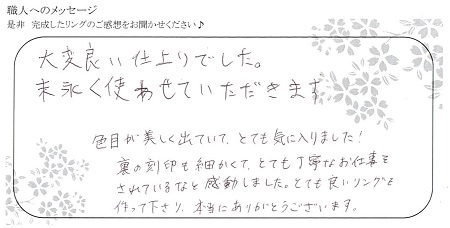 職人へのメッセージ
是非　完成したリングのご感想をお聞かせください♪
大変良い仕上りでした。
末永く使わせていただきます
色目が美しく出ていて、とても気に入りました！
裏の刻印も細かくて、とても丁寧なお仕事を
されているなと感動しました。とても良いリングを
作って下さり、本当にありがとうございます。